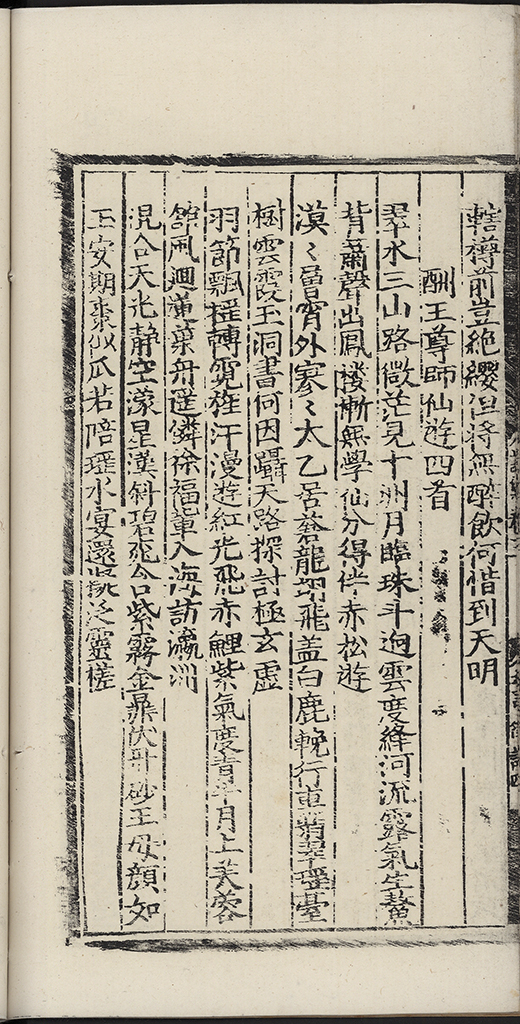 轄樽前豈絶纓但將無醉飲何惜到天明
酬王尊師仙遊四首
翠水三山路微茫見十洲月臨珠斗逈雲度絳河流露氣生鰲
背簫聲出鳳樓慚無學仙分得伴赤松遊
漠〻層霄外寥〻太乙居蒼龍翊飛盖白鹿輓行車翡翠瑶臺
樹雲霞玉洞書何因躡天路探討極玄虚
羽節飄摇轉霓旌汗漫遊紅光飛赤鯉紫氣度青牛月上芙蓉
舘風迴蓮葉舟還隣徐福輩入海訪瀛洲
混合天光静空濛星漢斜碧死含紫霧金鼎伏丹砂王母顔如
玉安期棗似瓜若陪瑶水宴還擬泛靈槎